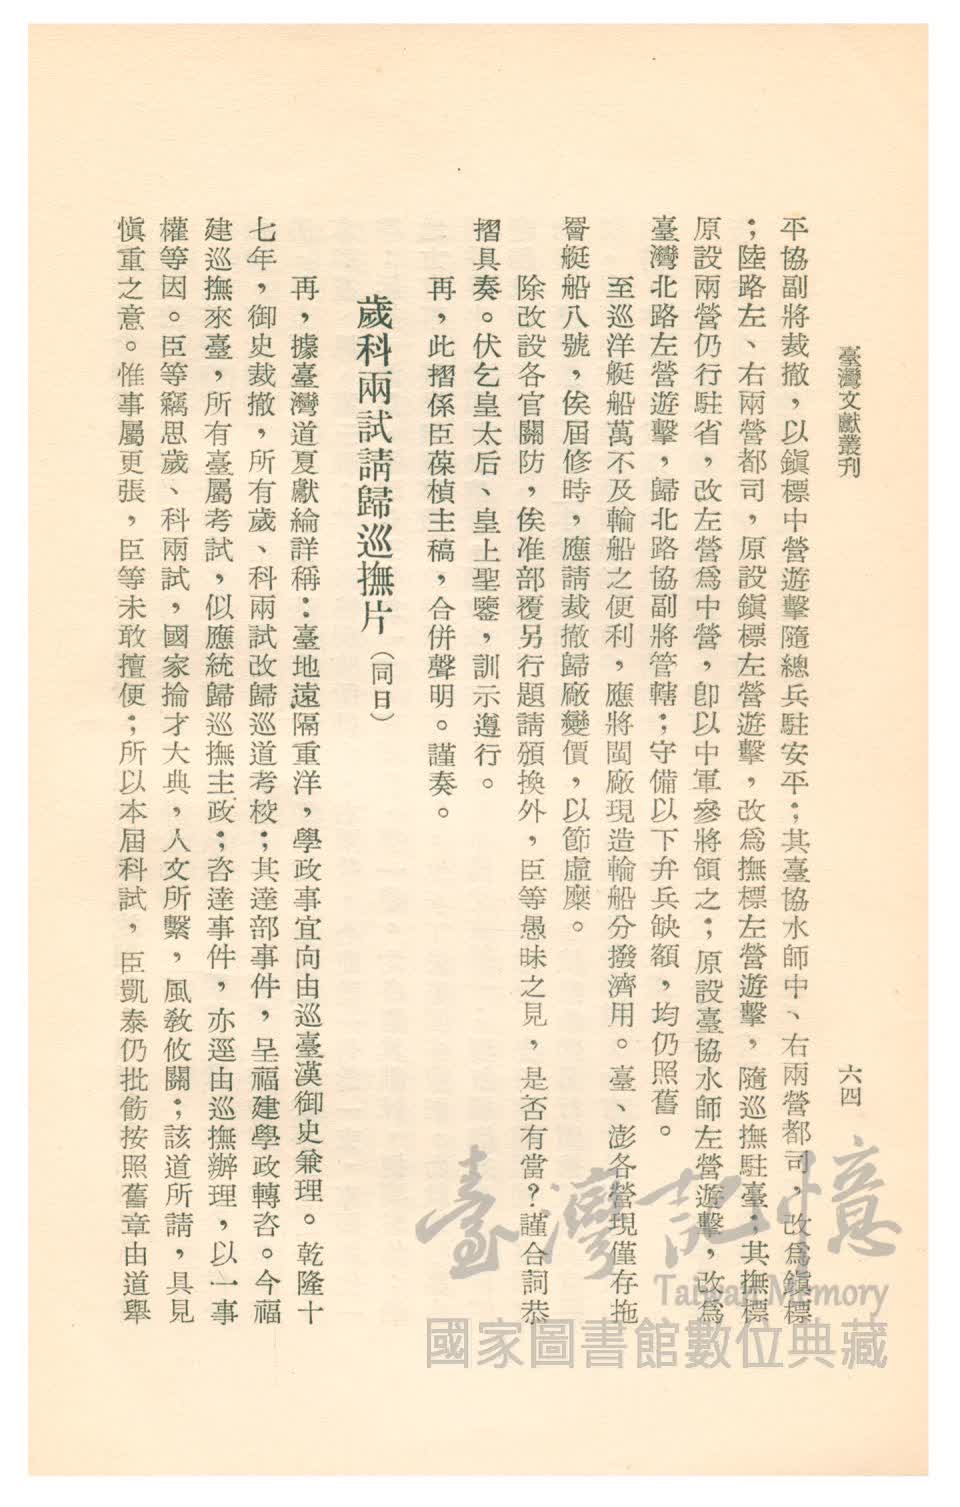 臺灣文獻叢刊
六四
平協副將裁撤，以鎭標中營遊擊隨總兵駐安平；其臺協水師中、右兩營都司，改爲鎭標
；陸路左、右兩營都司，原設鎭標左營遊擊，改爲撫標左營遊擊，隨巡撫駐臺；其撫標
原設兩營仍行駐省，改左營爲中營，卽以中軍參將領之；原設臺協水師左營遊擊，改爲
臺灣北路左營遊擊，歸北路協副將管轄；守備以下弁兵缺額，均仍照舊。
至巡洋艇船萬不及輪船之便利，應將閩廠現造輪船分撥濟用。臺、澎各營現僅存拖
罾艇船八號，俟屆修時，應請裁撤歸廠變價，以節虛糜。
除改設各官關防，俟准部覆另行題請頒換外，臣等愚昧之見，是否有當？謹合詞恭
摺具奏。伏乞皇太后、皇上聖鑒，訓示遵行。
再，此摺係臣葆楨主稿，合併聲明。謹奏。
歲科兩試請歸巡撫片（同日）
再，據臺灣道夏獻綸詳稱：臺地遠隔重洋，學政事宜向由巡臺漢御史兼理。乾隆十
七年，御史裁撤，所有歲、科兩試改歸巡道考校；其達部事件，呈福建學政轉咨。今福
建巡撫來臺，所有臺屬考試，似應統歸巡撫主政；咨達事件，亦逕由巡撫辦理，以一事
權等因。臣等竊思歲、科兩試，國家掄才大典，人文所繫，風敎攸關；該道所請，具見
愼重之意。惟事屬更張，臣等未敢擅便；所以本屆科試，臣凱泰仍批飭按照舊章由道舉
臺灣記憶
Taiwan Memory
國家圖書館數位典藏